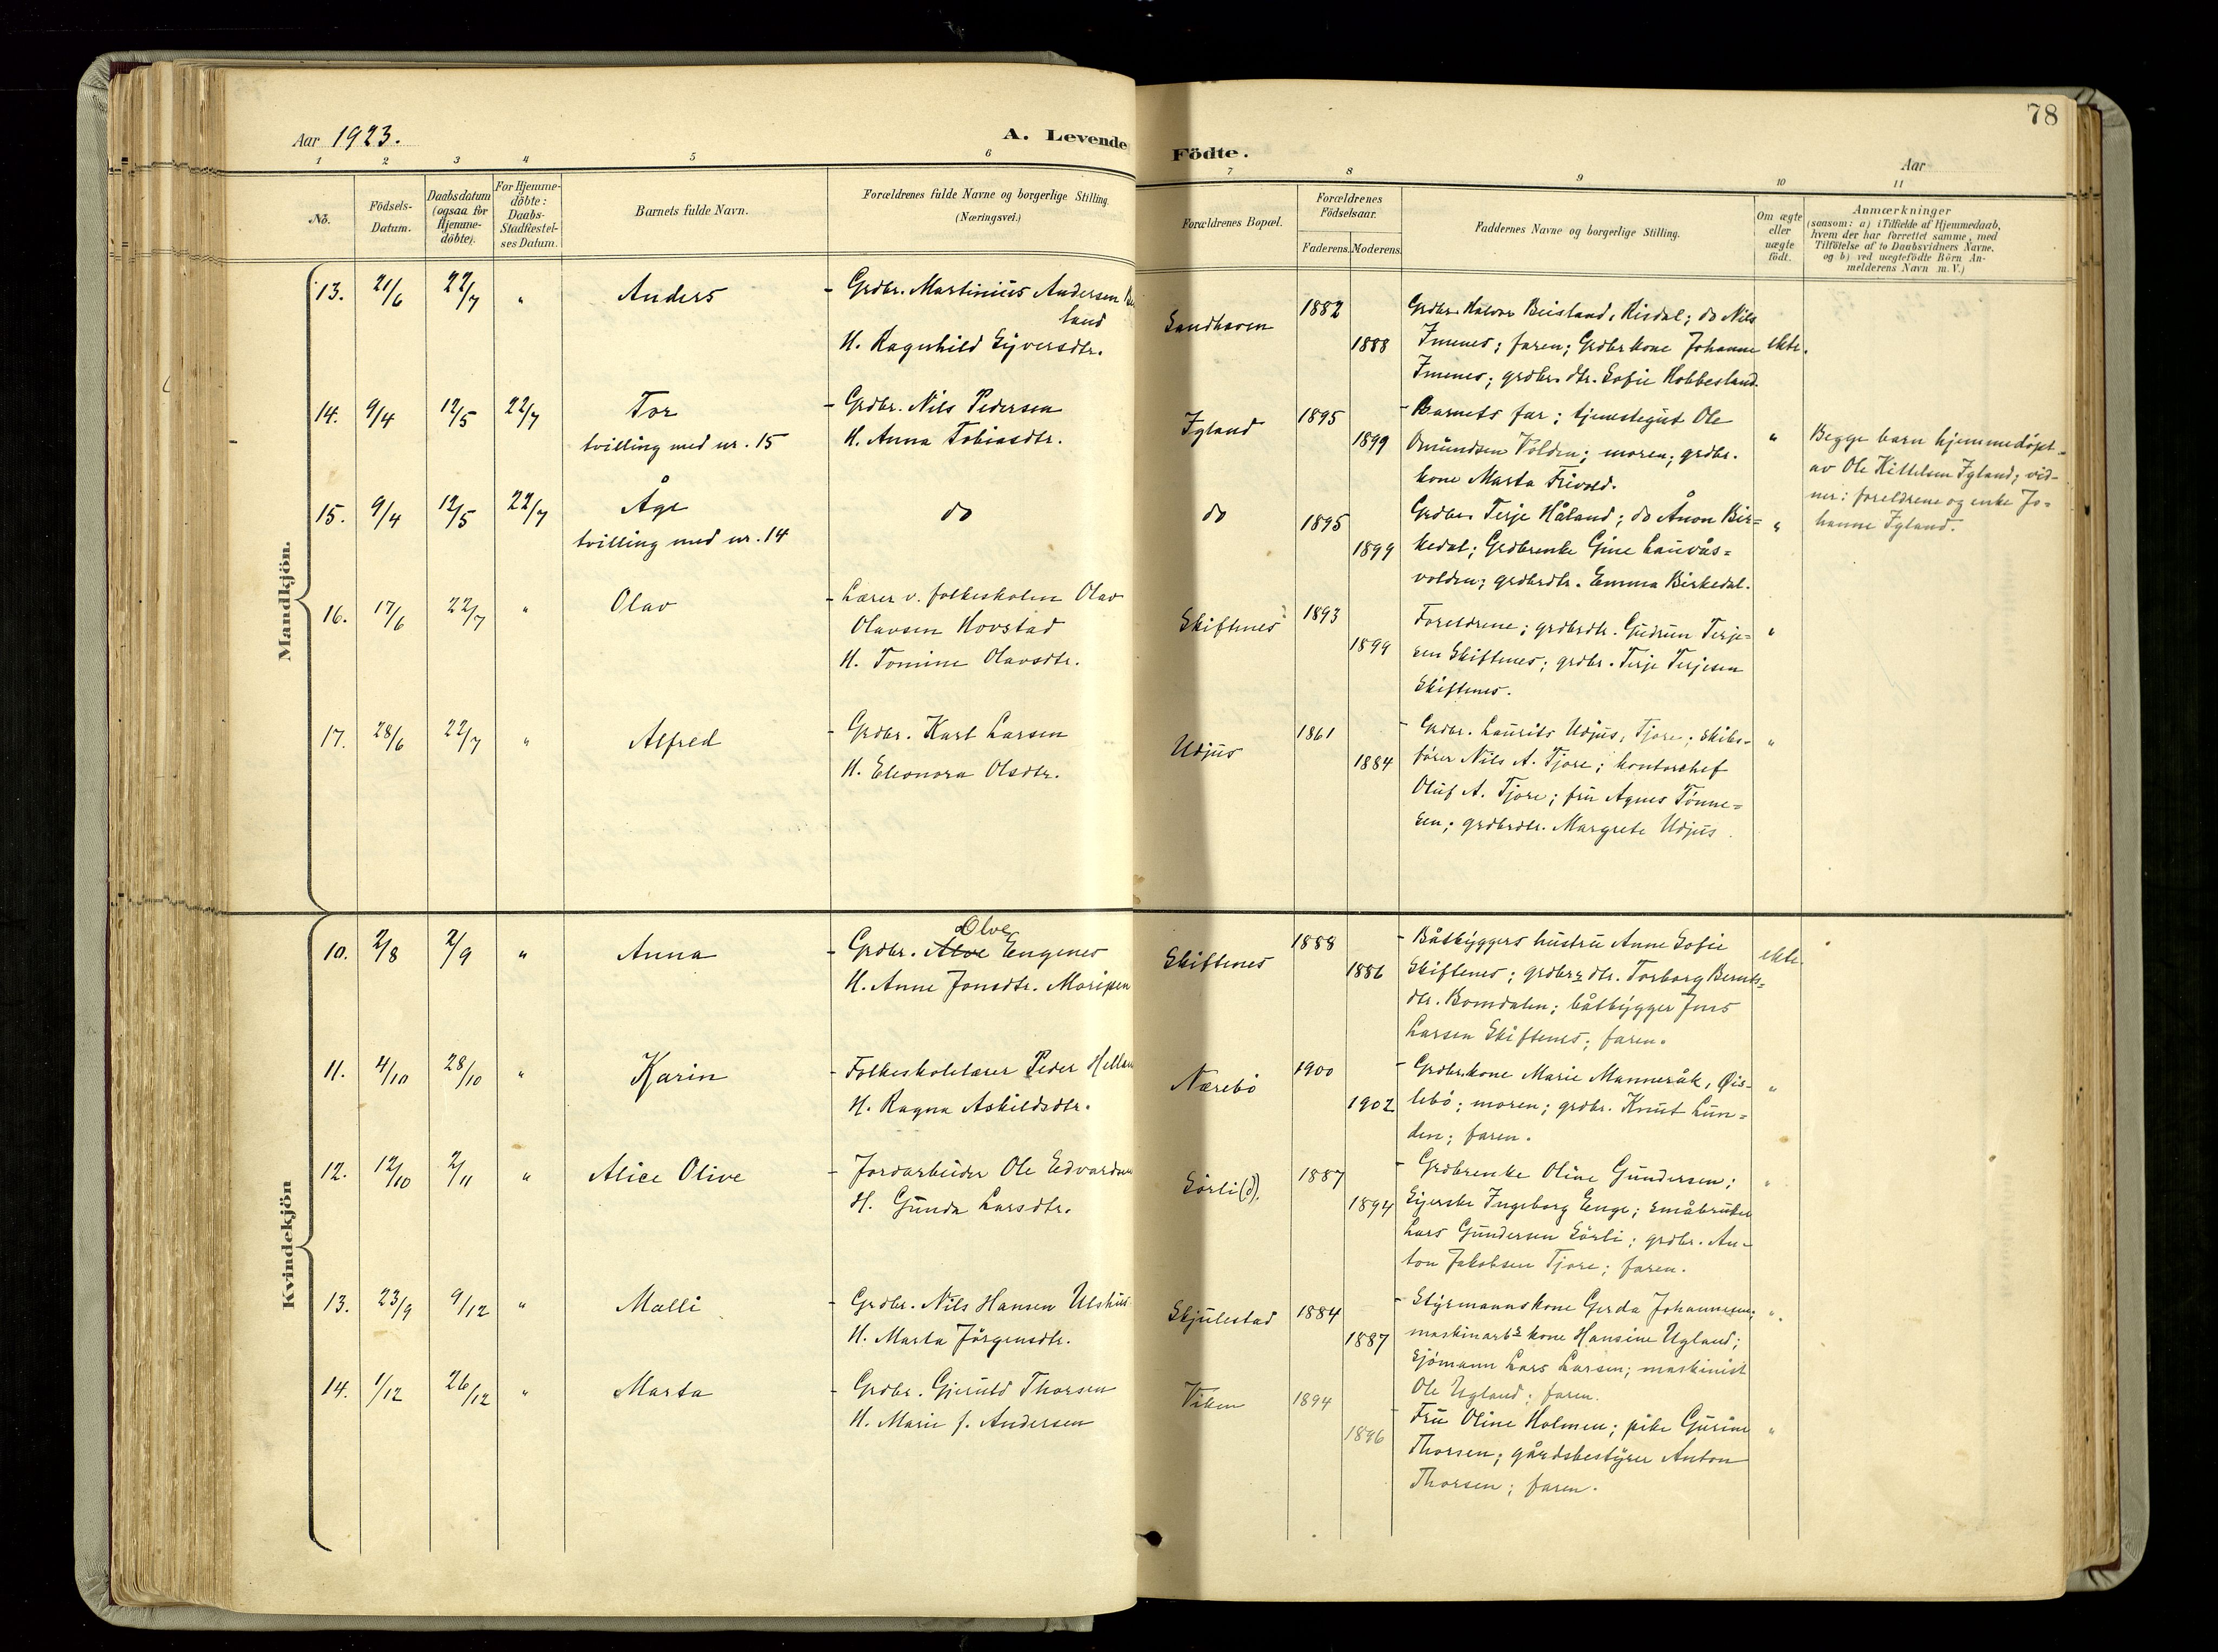 78
Aar 1923.
A. Levende Födte.
Aar
1 2 3 4 5 6 7 8 9 10 11
No.
Födsels-Datum.
Daabsdatum (ogsaa for Hjemme-döbte).
For Hjemme-döbte: Daabs-Stadfæstel-ses Datum.
Barnets fulde Navn.
Forældrenes fulde Navne og borgerlige Stilling. (Næringsvei.)
Forældrenes Bopæl.
Forældrenes Födselsaar.
Faderens. Moderens.
Faddernes Navne og borgerlige Stilling.
Om ægte eller uægte födt.
Anmærkninger
(saasom: a) i Tilfælde af Hjemmedaab,
hvem der har forrettet samme, med
Tilföielse af to Daabsvidners Navne,
og b) ved uægtefödte Börn An-
melderens Navn m. V.)
Mandkjön.
13. 21/6 22/7 " Anders
- Grdbr. Martinius Andersen
land
H. Ragnhild Syversdtr.
Sandhaven 1882
1888
Grdbr. Halvor Beisland, Risdal; do Nils
Imenes; faren; Grdbr.kone Johanne ekte.
Imenes; grdbr. dtr. Sofie Hobbesland.
14. 9/4 12/5 22/7 Tor
tvilling med nr. 15
- Grdbr. Nils Pedersen
H. Anna Tobiasdtr.
Igland 1895
1899
- Barnets far; tjenestegut Ole
Omundsen Volden; moren; grdbr. "
kone Marta Frivold.
Begge barn hjemmedøpt
av Ole Kittelsen Igland; vid-
ner: foreldrene og enke Jo-
hanne Igland.
15. 9/4 12/5 22/7 Åge
tvilling med nr. 14
do
do 1895
1899
Grdbr. Terje Håland; do Ånon Bir= "
kedal; Grdbrenke Gine Lauvås=
volden; grdbrdtr. Emma Birkedal.
16. 17/6 22/7 " Olav
- Lærer v. folkeskolen Olav
Olavsen Hovstad
H. Tomine Olavsdtr.
Skiftenes 1893
1899
Foreldrene; grdbrdtr. Gudrun Terje= "
sen Skiftenes; grdbr. Terje Terjesen
Skiftenes.
17. 28/6 22/7 " Alfred
- Grdbr. Karl Larsen
H. Eleonora Olsdtr.
Udjus 1861
1884
- Grdbr. Laurits Udjus, Tjore; skibs- "
fører Nils A. Tjore; kontorchef
Oluf A. Tjore; fru Agnes Tønne=
sen; grdbrdtr. Margrete Udjus.
Kvindekjön
10. 2/8 2/9 " Anna
Olve
- Grdbr. Alve Engenes
H. Anne Jonsdtr.
Skiftenes 1888
1886
- Båtbyggers hustru Anne Sofie ekte.
Skiftenes; grdbrs dtr. Torborg Bernts=
dtr. Bomdalen; båtbygger Jens
Larsen Skiftenes; faren.
11. 4/10 28/10 " Karin
- Folkeskolelærer Peder
H. Ragna Askildsdtr.
Nærebø 1900
1902
- Grdbr.kone Marie Manneråk, Øis- "
lebø; moren; grdbr. Knut Lun=
den; faren.
12. 12/10 2/11 " Alice Olive
- Jordarbeider Ole Edvardsen
H. Gunda Larsdtr.
Sörli(d). 1887
1894
- Grdbrenke Oline Gundersen; "
Eyerske Ingeborg Enge; småbruker
Lars Gundersen Sörli; grdbr. An-
ton Jakobsen Tjore; faren.
13. 23/9 9/12 " Malli
- Grdbr. Nils Hansen
H. Marta Jörgensdtr.
Skjulestad 1884
1887
- Styrmannskone Gerda Johannesen; "
maskinarbs kone Hansine Ugland;
Sjömann Lars Larsen; maskinist
Ole Ugland; faren.
14. 1/12 26/12 " Marta
- Grdbr. Gjeruld Thorsen
H. Marie f. Andersen
Viken 1894
1896
- Fru Oline Holmen; pike Gurine "
Thorsen; gårdsbestyrer Anton
Thorsen; faren.